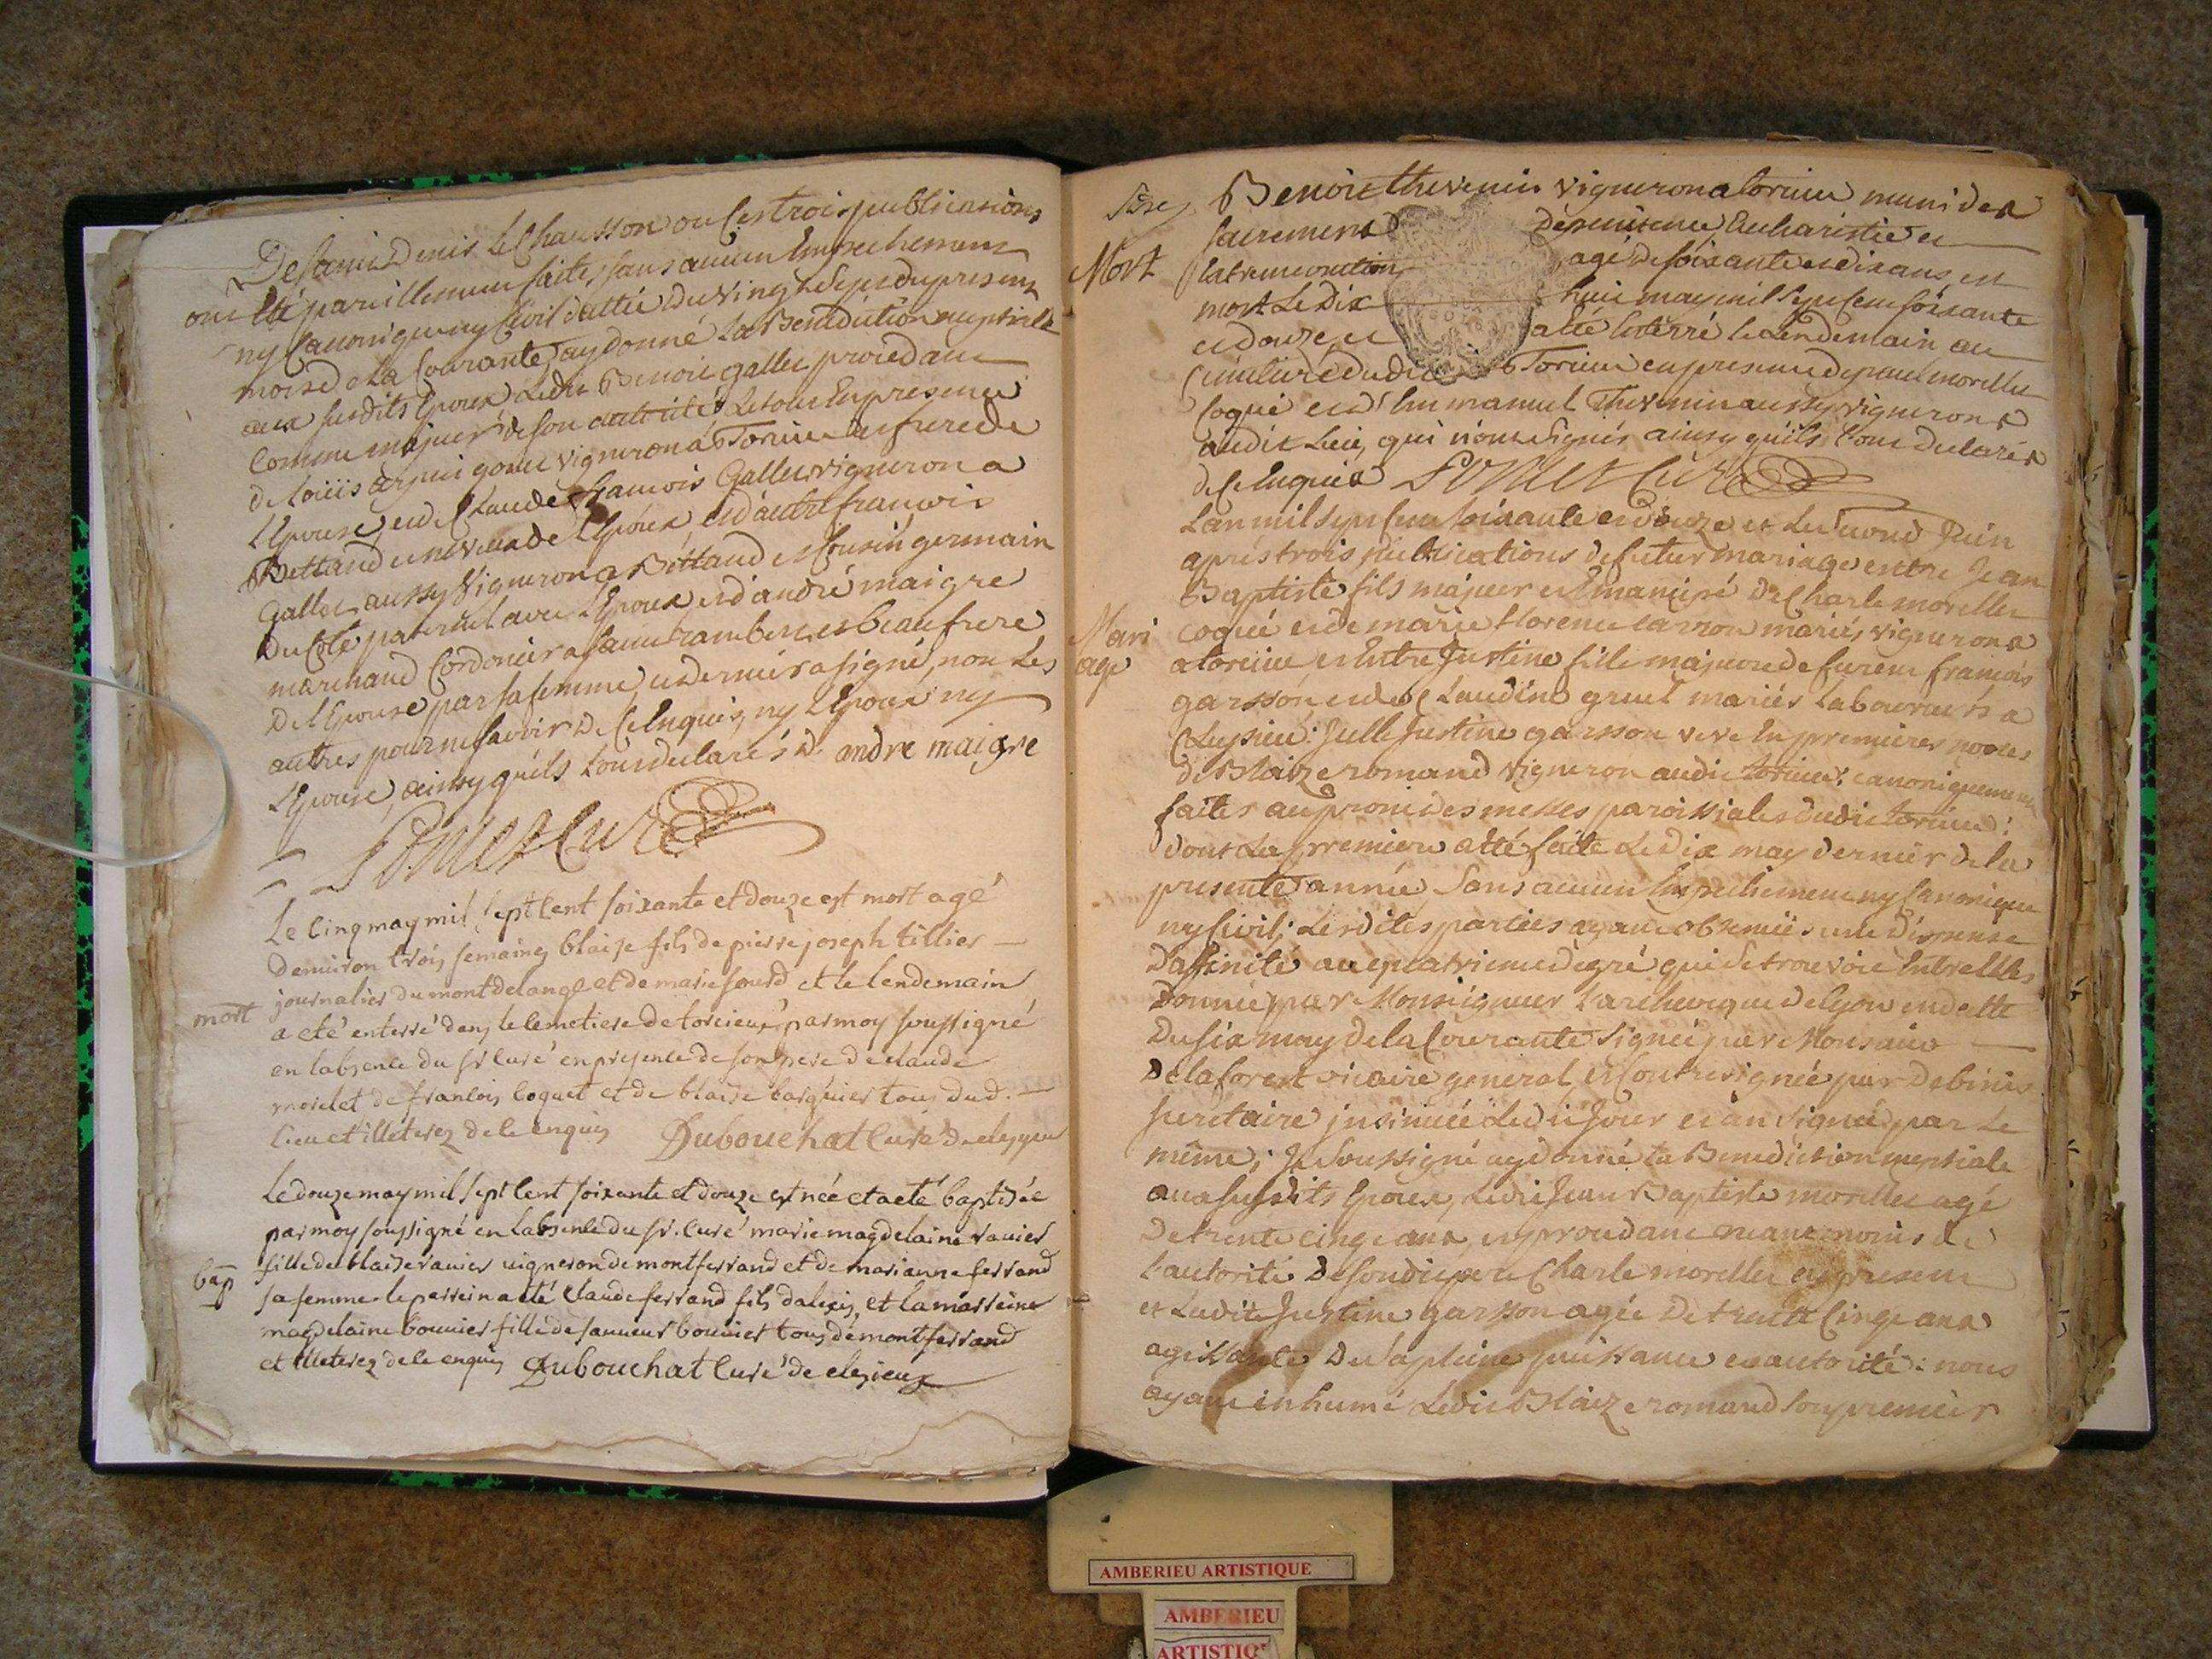 De Saint Denis Le Chausson ou Ces trois publications
ont été pareillement faites, sans aucun Empechement
ny Canonique ny Civil dattée du vingt Sept du present
mois de La Courante, ay donné La Benediction nuptiale
aux susdits Epoux Ledit Benoit gallet procedant
Comme majeur de son autorité Le tout En presence
de Loüis arpin gonet vigneron a Torcieu
L'Epouse, et de Claude francois Gallet vigneron a
Bettand et neveu de L'Epoux, et d'autre francois
Gallet aussy Vigneron a Bettand et Cousin germain
Du Coté paternel avec L'Epoux et d'andré maigre
marchand Cordonier a Saint rambert, et beau frere
De L'Epouse par sa femme, ce dernier a signé, non Les
autres pour ne Savoir De Ce Enquis, ny L'Epoux ny
L'Epouse, ainsy qu'ils L'ont declarés D. andre maigre
Curé
Le Cinq may mil sept Cent soixante et douze est mort agé
denviron trois semaines blaise fils de pierre joseph tillier
journalier du mont de lange et de marie sourd et le lendemain
mort
a eté enterré dans le Cemetiere de torcieux par moy soussigné
en labsence du sr Curé en presence de son pere de claude
morelet de francois Coquet et de blaise barquier tous dud.
lieu et illeterez de ce enquis Dubouchat Curé de cleyzieu
Le douze may mil sept Cent soixante et douze est née et a eté baptisée
par moy soussigné en labsence du sr. Curé marie magdelaine ravier
fille de blaise ravier vigneron de montferrand et de marianne ferrand
bap
sa femme le parrein a eté Claude ferrand fils dalexis, et la marreine
magdelaine bouvier fille de bouvier tous de montferrand
et illeterez de ce enquis Dubouchat Curé de clezieux
Benoit thevenin vigneron a torcieu muni des
Mort
sacrements De penitence Eucharistie et
Extremeonction, agé de soixante et dix ans, est
mort Le Dix huit may mil Sept Cent soixante
et douze, et a été Enterré le Lendemain au
Cimetiere dudit Torcieu en presence de paul morellet
Coquié et d'Emmanuel Thevenin aussy vignerons
audit Lieu, qui n'ont signés ainsy qu'ils L'ont declarés
de Ce Enquis Curé
L'an mil sept Cent soixante et douze et Le second Juin
aprés trois publications de futur mariage entre Jean
Baptiste fils majeur et Emancipé De Charle morellet
Mari
age
coquié et de marie florence carron mariés, vignerons
a torcieu et Entre Justine fille majeure de francois
garsson, et de Claudine gruel mariés Laboureurs a
Cleysieu: Jcelle Justine garsson veve En premieres noces
de Blaize romand vigneron audit torcieu: canoniquement
faites au prone des messes paroissiales dudit torcieu:
dont La premiere a été faite Le Dix may dernier de la
presente année, Sans aucun Empechement ny Canonique
ny Civil; Lesdites parties ayant obtenüs une Dispense
D'affinité au quatrieme degré qui se trouvoit Entre elles
Donnée par Monseigneur L'archeveque de Lyon en datte
Du six may de la Courante Signée par Monsieur
Delaforest vicaire general, et Contresignée par Debinis
secretaire jnsinuée Ledit Jour et an Signée par Le
même; Je Soussigné ay donné la Benediction nuptiale
aux susdits Epoux, Ledit Jean Baptiste morellet agé
De trente cinq ans, et procedant neanmoins de
L'autorité De son dit pere Charle morellet cy present
et Ladite Justine garsson agée De trente Cinq ans
agissante De sa pleine puissance et autorité: nous
ayant inhumé Ledit Blaize romand son premier
AMBERIEU ARTISTIQUE
AMBERIEU
ARTISTIQ